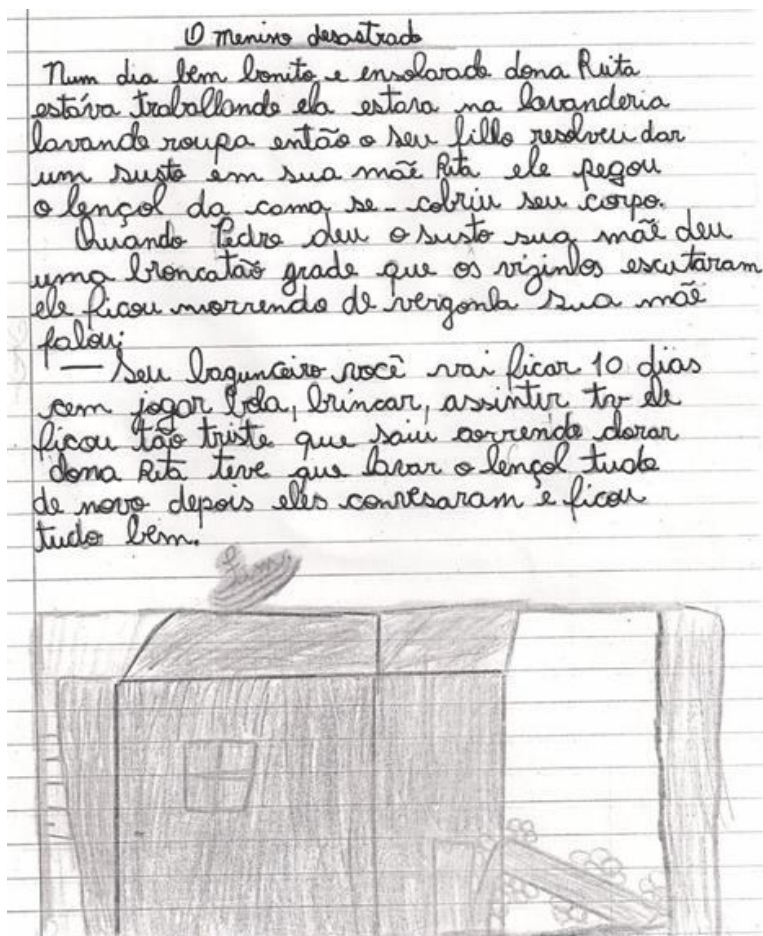 O menino desastrado
Num dia bem bonito e ensolarado dona Ruita
estáva traballando ela estava na lavanderia
lavando roupa então o seu fillo resolveu dar
um susto em sua mãe Rita ele pegou
o lençol da cama se-cobriu seu corpo.
Quando Pedro deu o susto sua mãe deu
uma broncatão grade que os vizinlos escutaram
ele ficou morrendo de vergonla sua mãe
falou:
— Seu bagunceiro você vai ficar 10 dias
cem jogar bola, brincar, assintir tv ele
ficou tão triste que saiu correndo
dona Rita teve que lavar o lençol tudo
de novo depois eles convesaram e ficou
tudo bem.
Fim.